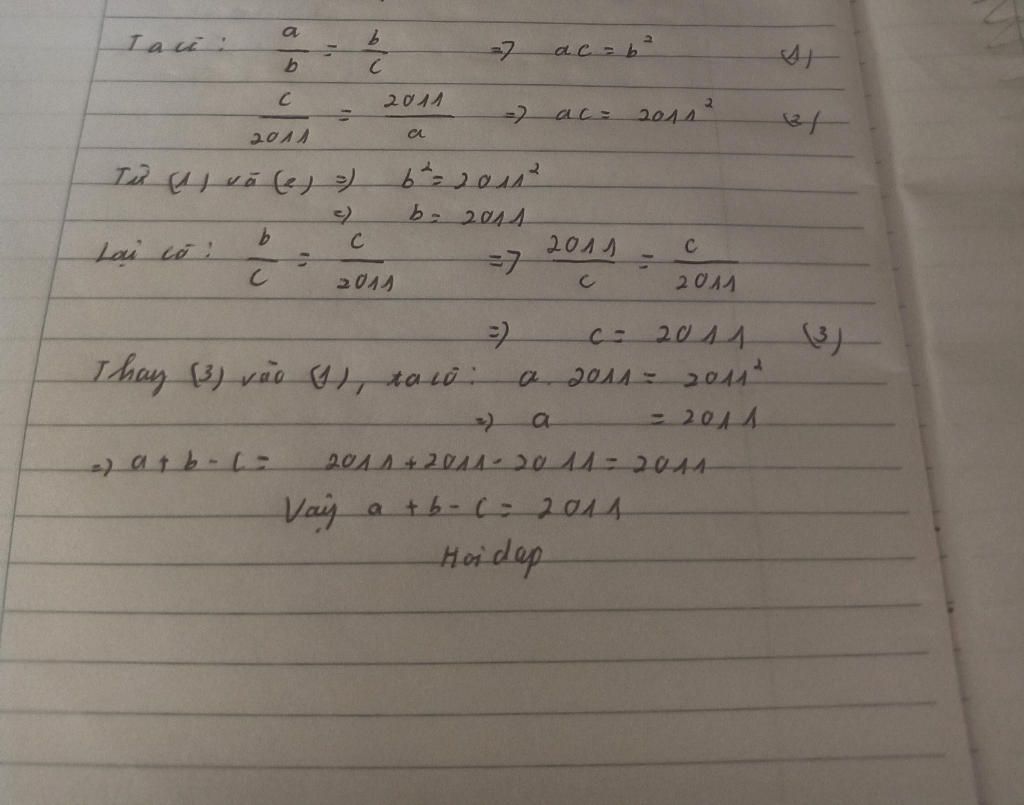 Ta có : a/b = b/c => ac = b² (1)
c/2011 = 2011/a => ac = 2011² (2)
Từ (1) và (2) => b² = 2011²
=> b = 2011
Lại có : b/c = c/2011 => 2011/c = c/2011
=> c = 2011 (3)
Thay (3) vào (1), ta có : a . 2011 = 2011²
=> a = 2011
=> a + b - c = 2011 + 2011 - 2011 = 2011
Vậy a + b - c = 2011
Hoidap